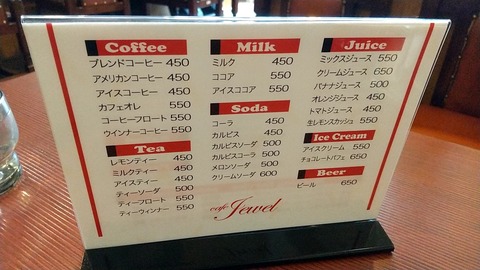 Coffee
ブレンドコーヒー 450
アメリカンコーヒー 450
アイスコーヒー 450
カフェオレ 550
コーヒーフロート 550
ウインナーコーヒー 550
Tea
レモンティー 450
ミルクティー 450
アイスティー 450
ティーソーダ 500
ティーフロート 550
ティーウィンナー 550
Milk
ミルク 450
ココア 550
アイスココア 550
Soda
コーラ 450
カルピス 450
カルピスソーダ 500
カルピスコーラ 500
メロンソーダ 500
クリームソーダ 600
Juice
ミックスジュース 550
クリームジュース 650
バナナジュース 500
オレンジジュース 450
トマトジュース 450
生レモンスカッシュ 550
Ice Cream
アイスクリーム 550
チョコレートパフェ 650
Beer
ビール 650
cafe Jewel